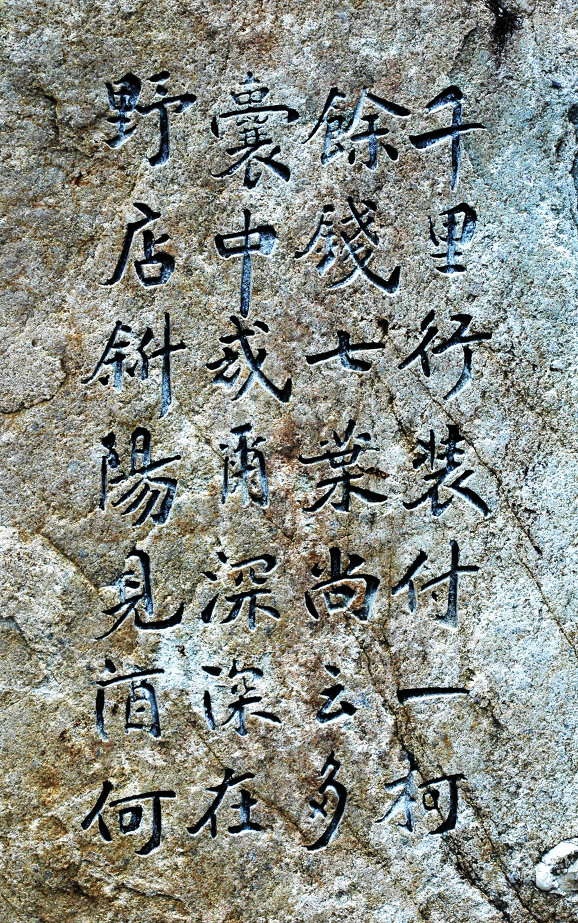 千里行装付一柯
餘錢七葉尚云多
囊中戒爾深深在
野店斜陽見酒何